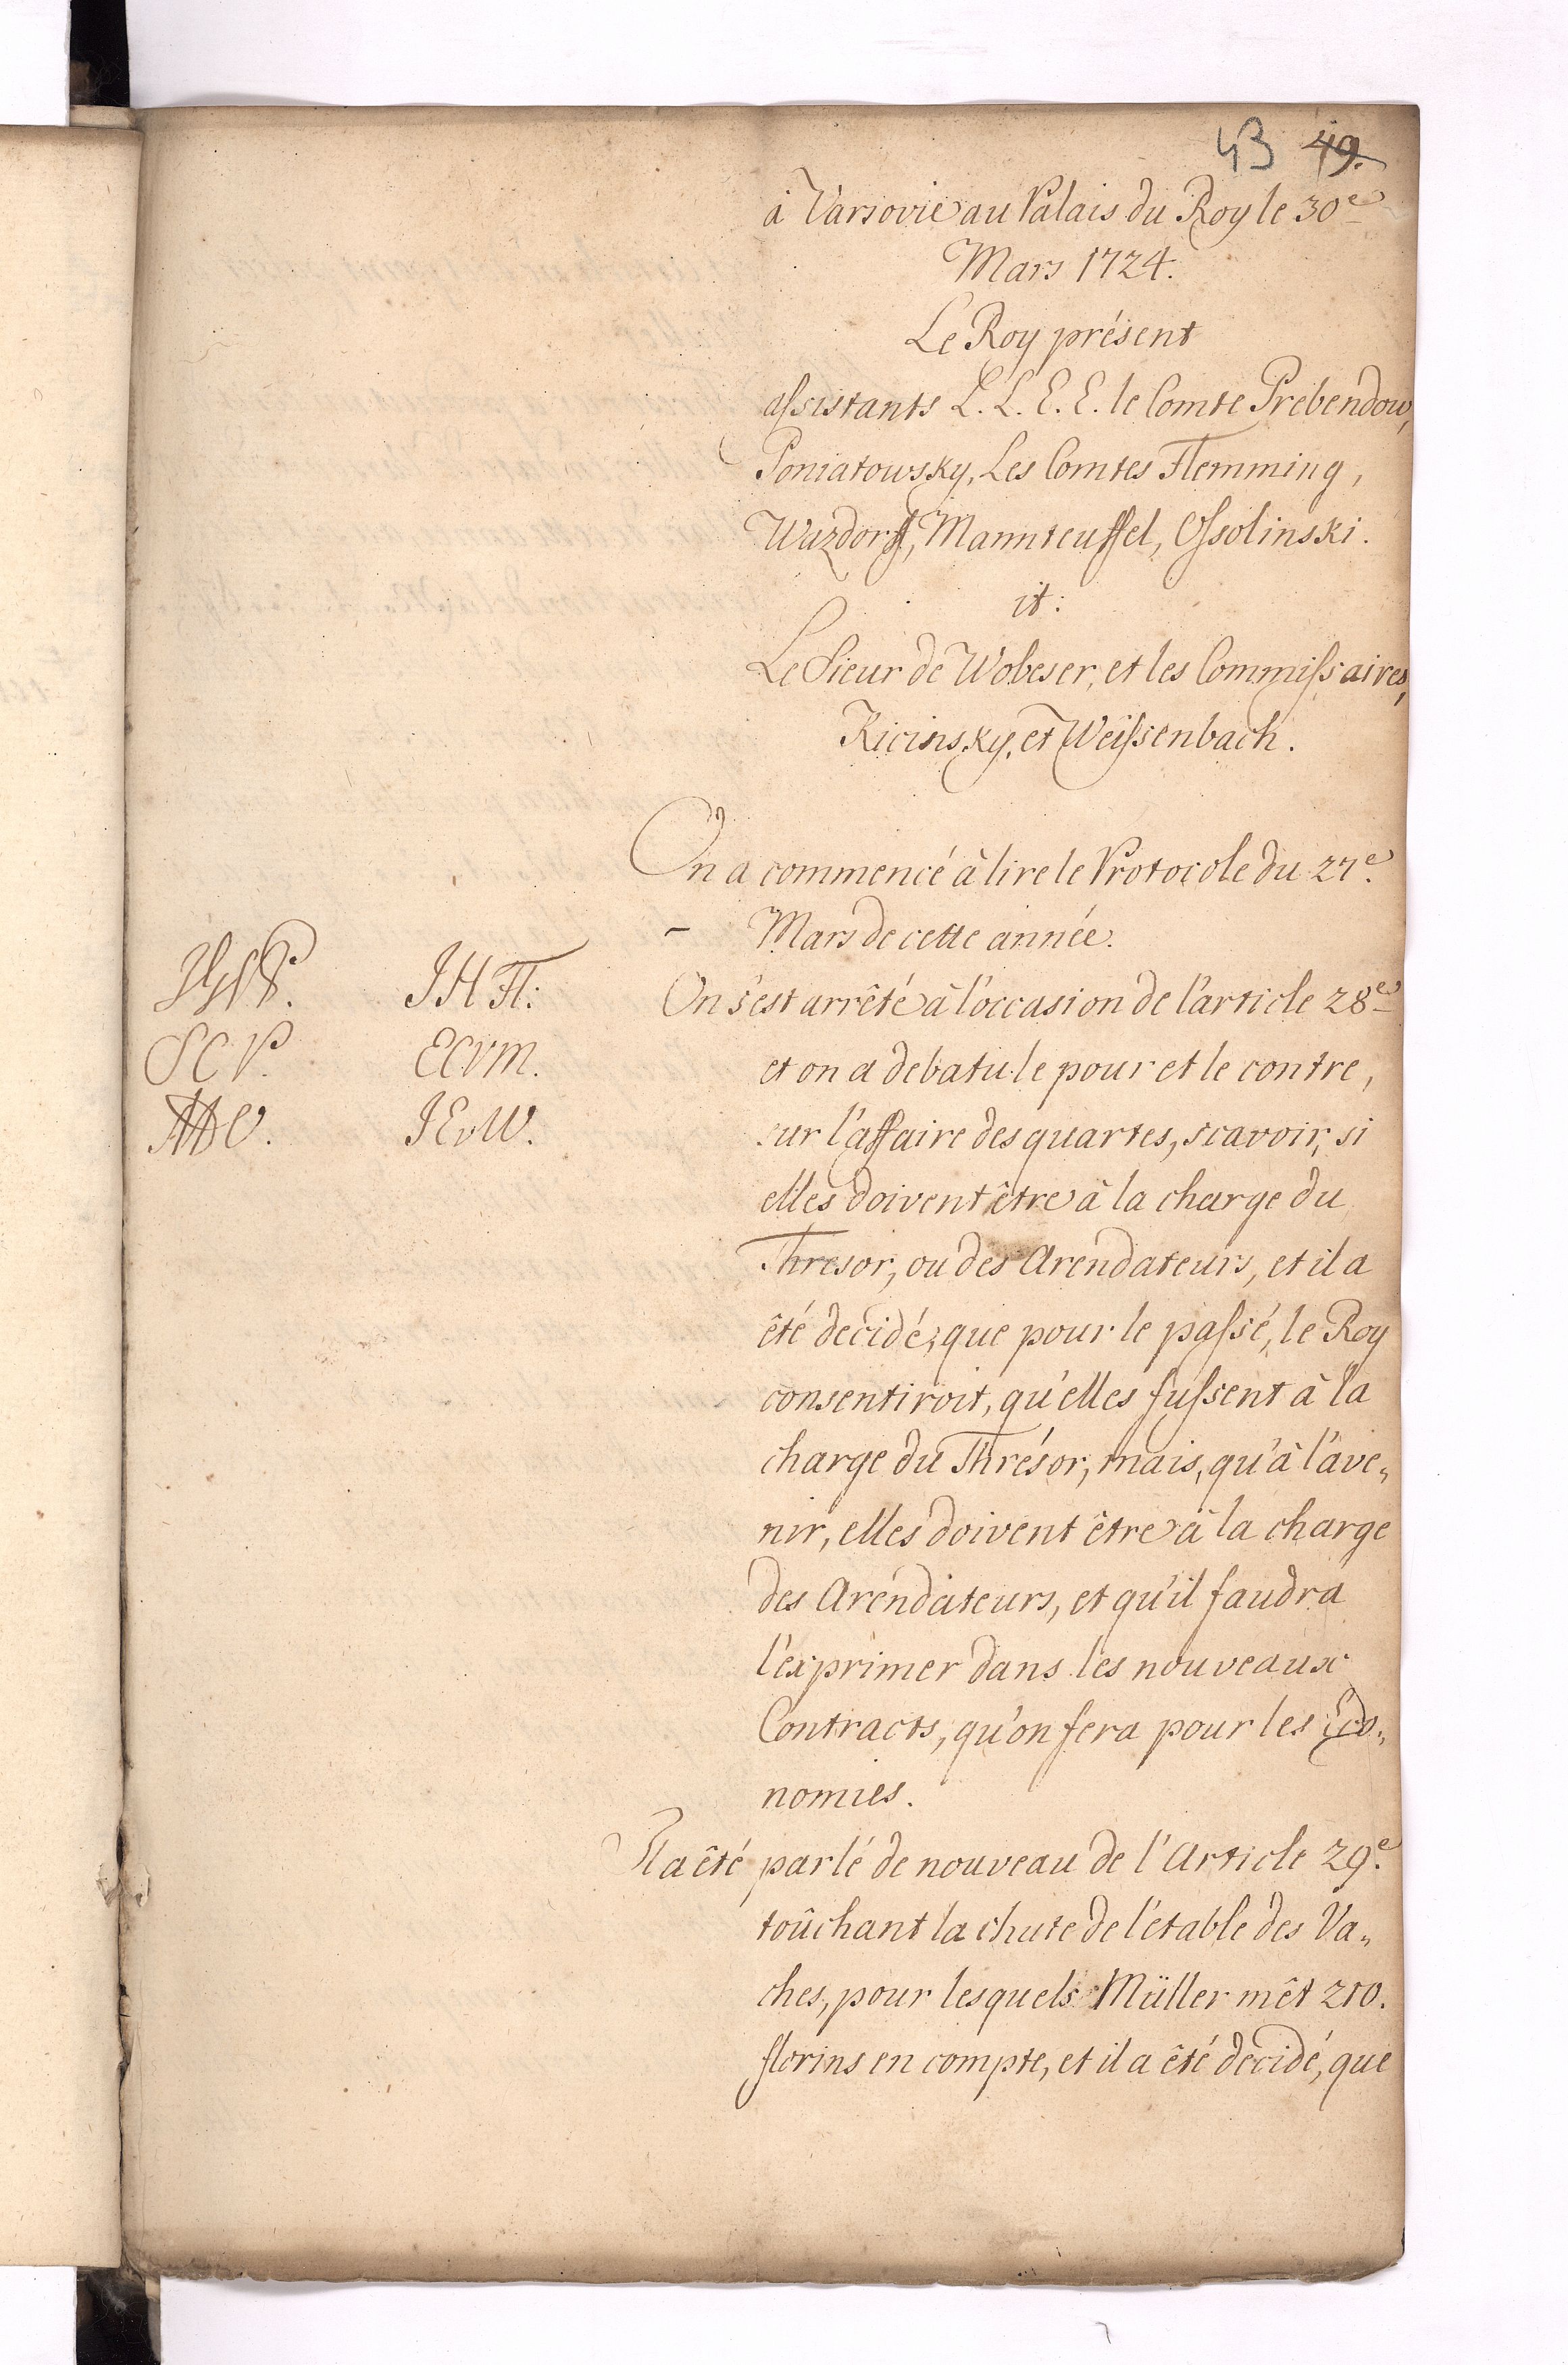 43 49.
à Varsovie au Palais du Roy le 30e
Mars 1724.
Le Roy présent
assistants L. L. E. E. le Comte Prebendow,
Poniatowsky, Les Comtes Flemming,
Wazdorff, Mannteuffel, Ossolinski.
it:
Le Sieur de Wobeser, et les Commissaires,
Kicinsky, et Weissenbach.
On a commencé à lire le Protocole du 27e.
Mars de cette année.
On s'est arrêté à l'occasion de l'article 28e
et on a debatu le pour et le contre,
sur l'affaire des quartes, scavoir, si
elles doivent être à la charge du
Thresor, ou des Arendateurs, et il a
êté decidé, que pour le passé, le Roy
consentiroit, qu'elles fussent à la
charge du Thrésor, mais, qu'à l'ave„
nir, elles doivent être à la charge
des Arendateurs, et qu'il faudra
l'exprimer dans les nouveaux
Contracts, qu'on fera pour les Eco„
nomies.
Il a êté parlé de nouveau de l'Article 29e.
toûchant la chute de l'étable des Va„
ches, pour lesquels Müller mêt 210.
florins en compte, et il a êté décidé, que
J H Fl:
S C P. E C V M.
J E v W.